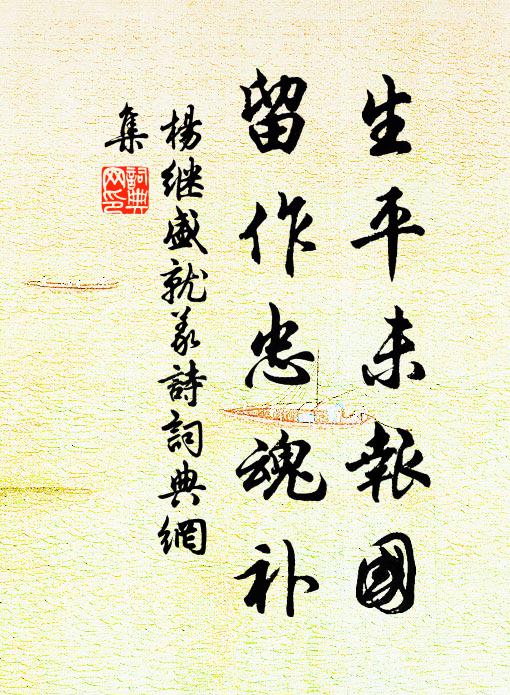 生平未報國
留作忠魂补
楊继盛就义詩詞典網
集
詞典网印